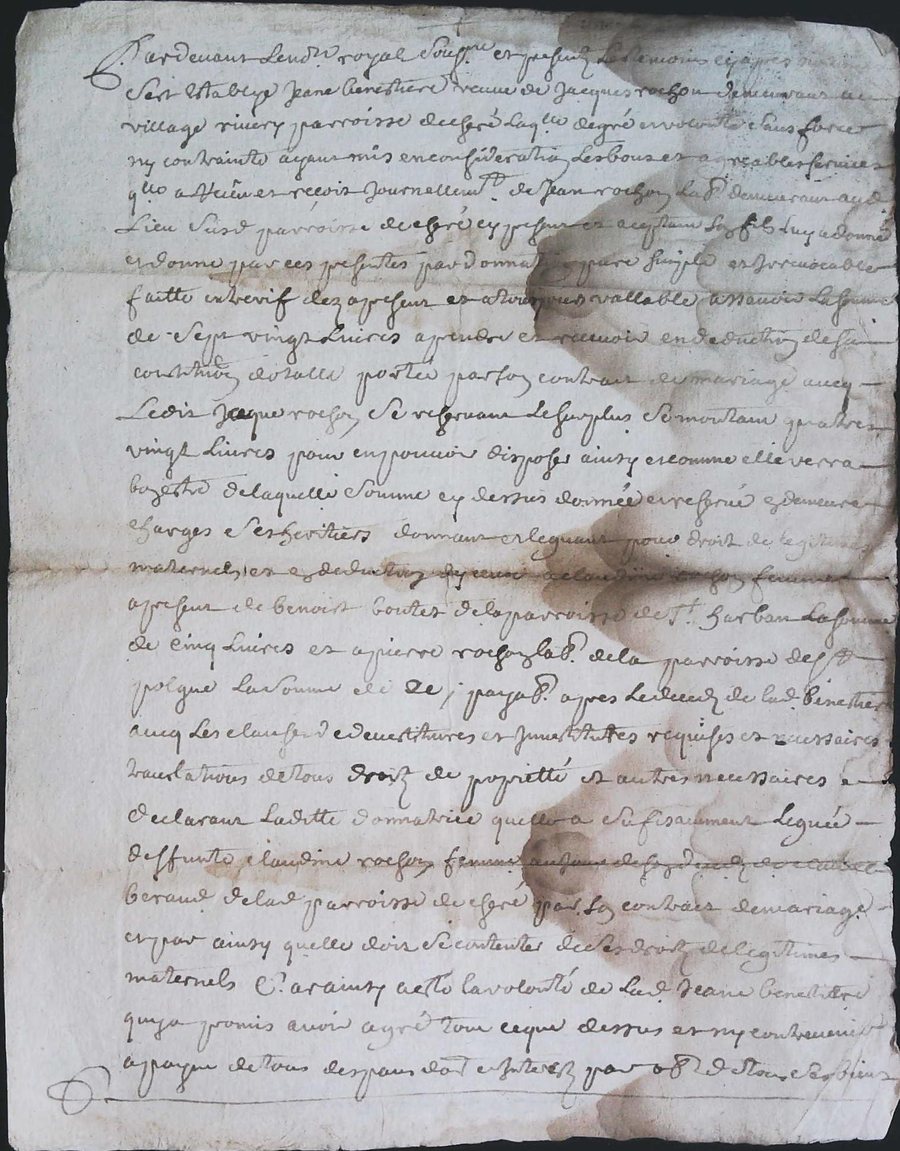 Pardevant Le no.re royal Soub.né et presentz Les temoins cy apres
S'est establye Jeane benestiere veuve de Jacques rochon demeurant au
village rivery parroisse de cheré Laq.lle de gré et volonté Sans force
ny contrainte ayant mis en consideration Les bons et agreables services
q.lle a Heu et recoit Journellem.t de Jean rochon La.b. demeurant aud
Lieu Susd parroisse de cheré cy present et aceptant Son fils Luy a donné
et donne par ces presentes par donna pure simple et Irrevocable
faitte entre vif dez apresent et a tousjours vallable assavoir La somme
de Sept vingt Livres a prendre et recevoir en deduction de sa
constituõn dotalle portée par son contrait de mariage avecq
Ledit Jacque rochon Se reservant Le surplus Se montant quatre
vingt Livres pour en pouvoir disposer ainsy et comme elle verra
bon estre de laquelle Somme cy dessus donnée et reservé demeure
charges Ses heritiers donnant et leguant pour droit de legitimes
maternels et en deduction d'yceux a claudine rochon femme
apresent de benoist boutet de la parroisse de S.t harban La somme
de Cinq Livres et a pierre rochon lab.r de la parroisse de S.t
polgue La Somme de payab. apres Le deced de lad. benestiere
avecq Les clauses de devestitures et Investitures requises et necessaires
translations de tous droitz de proprietté et autres necessaires
declarant Laditte donnatrice quelle a Sufisamment Legué
deffunte claudine rochon femme
beraud de lad parroisse de cheré par Son contract de mariage
et par ainsy quelle doit Se contenter de Ses droitz de legitimes
maternels Car ainsy a esté la volonté de Lad Jeane benestiere
quy a promis avoir agré tout ce que dessus et n'y contrevenir
a payne de tous despans et Interestz par ob. de tous Ses biens